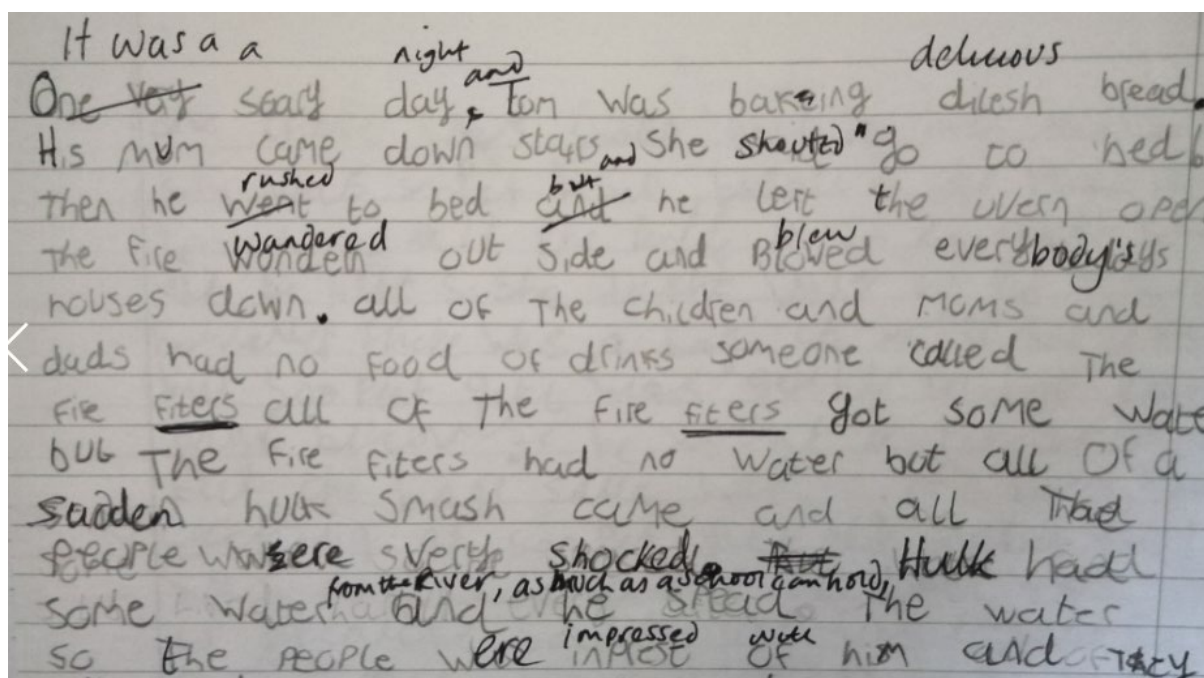 It was a a night and delicious
One very scary day, tom was bakeing dilesh bread.
His mum came down stairs and She shouted "go to bed.
Then he rushed went to bed but and he left the uvern ope
The fire wandered out side and blew Blowed everybody's
houses down. all of The children and moms and
dads had no food or drinks someone called The
fire fiters all of The fire fiters got some wate
but The fire fiters had no water but all of a
sudden hulk smash came and all The
people were very shocked. But Hulk had
from the River, as much as a school can hold,
some water and he spread The water
so the people were impressed with of him and They